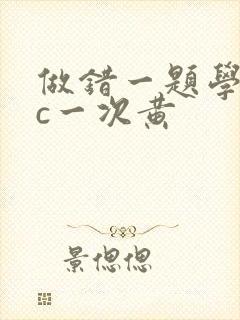 做錯一題學
c一次黄
景偲偲